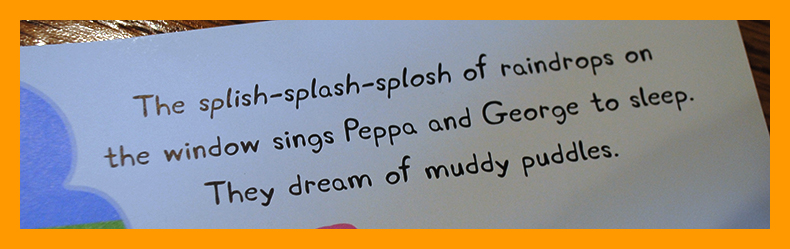 The splish-splash-splosh of raindrops on
the window sings Peppa and George to sleep.
They dream of muddy puddles.